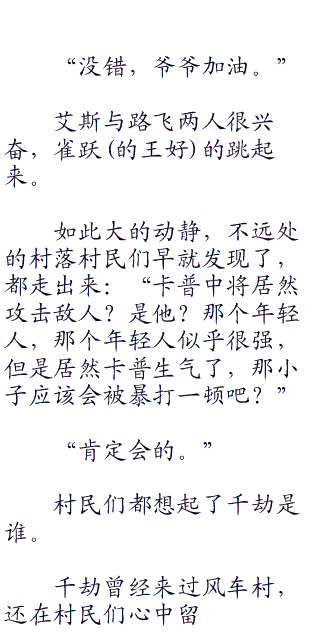 “没错，爷爷加油。”
艾斯与路飞两人很兴
奋，雀跃(的王好)的跳起
来。
如此大的动静，不远处
的村落村民们早就发现了，
都走出来：“卡普中将居然
攻击敌人？是他？那个年轻
人，那个年轻人似乎很强，
但是居然卡普生气了，那小
子应该会被暴打一顿吧？”
“肯定会的。”
村民们都想起了千劫是
谁。
千劫曾经来过风车村，
还在村民们心中留